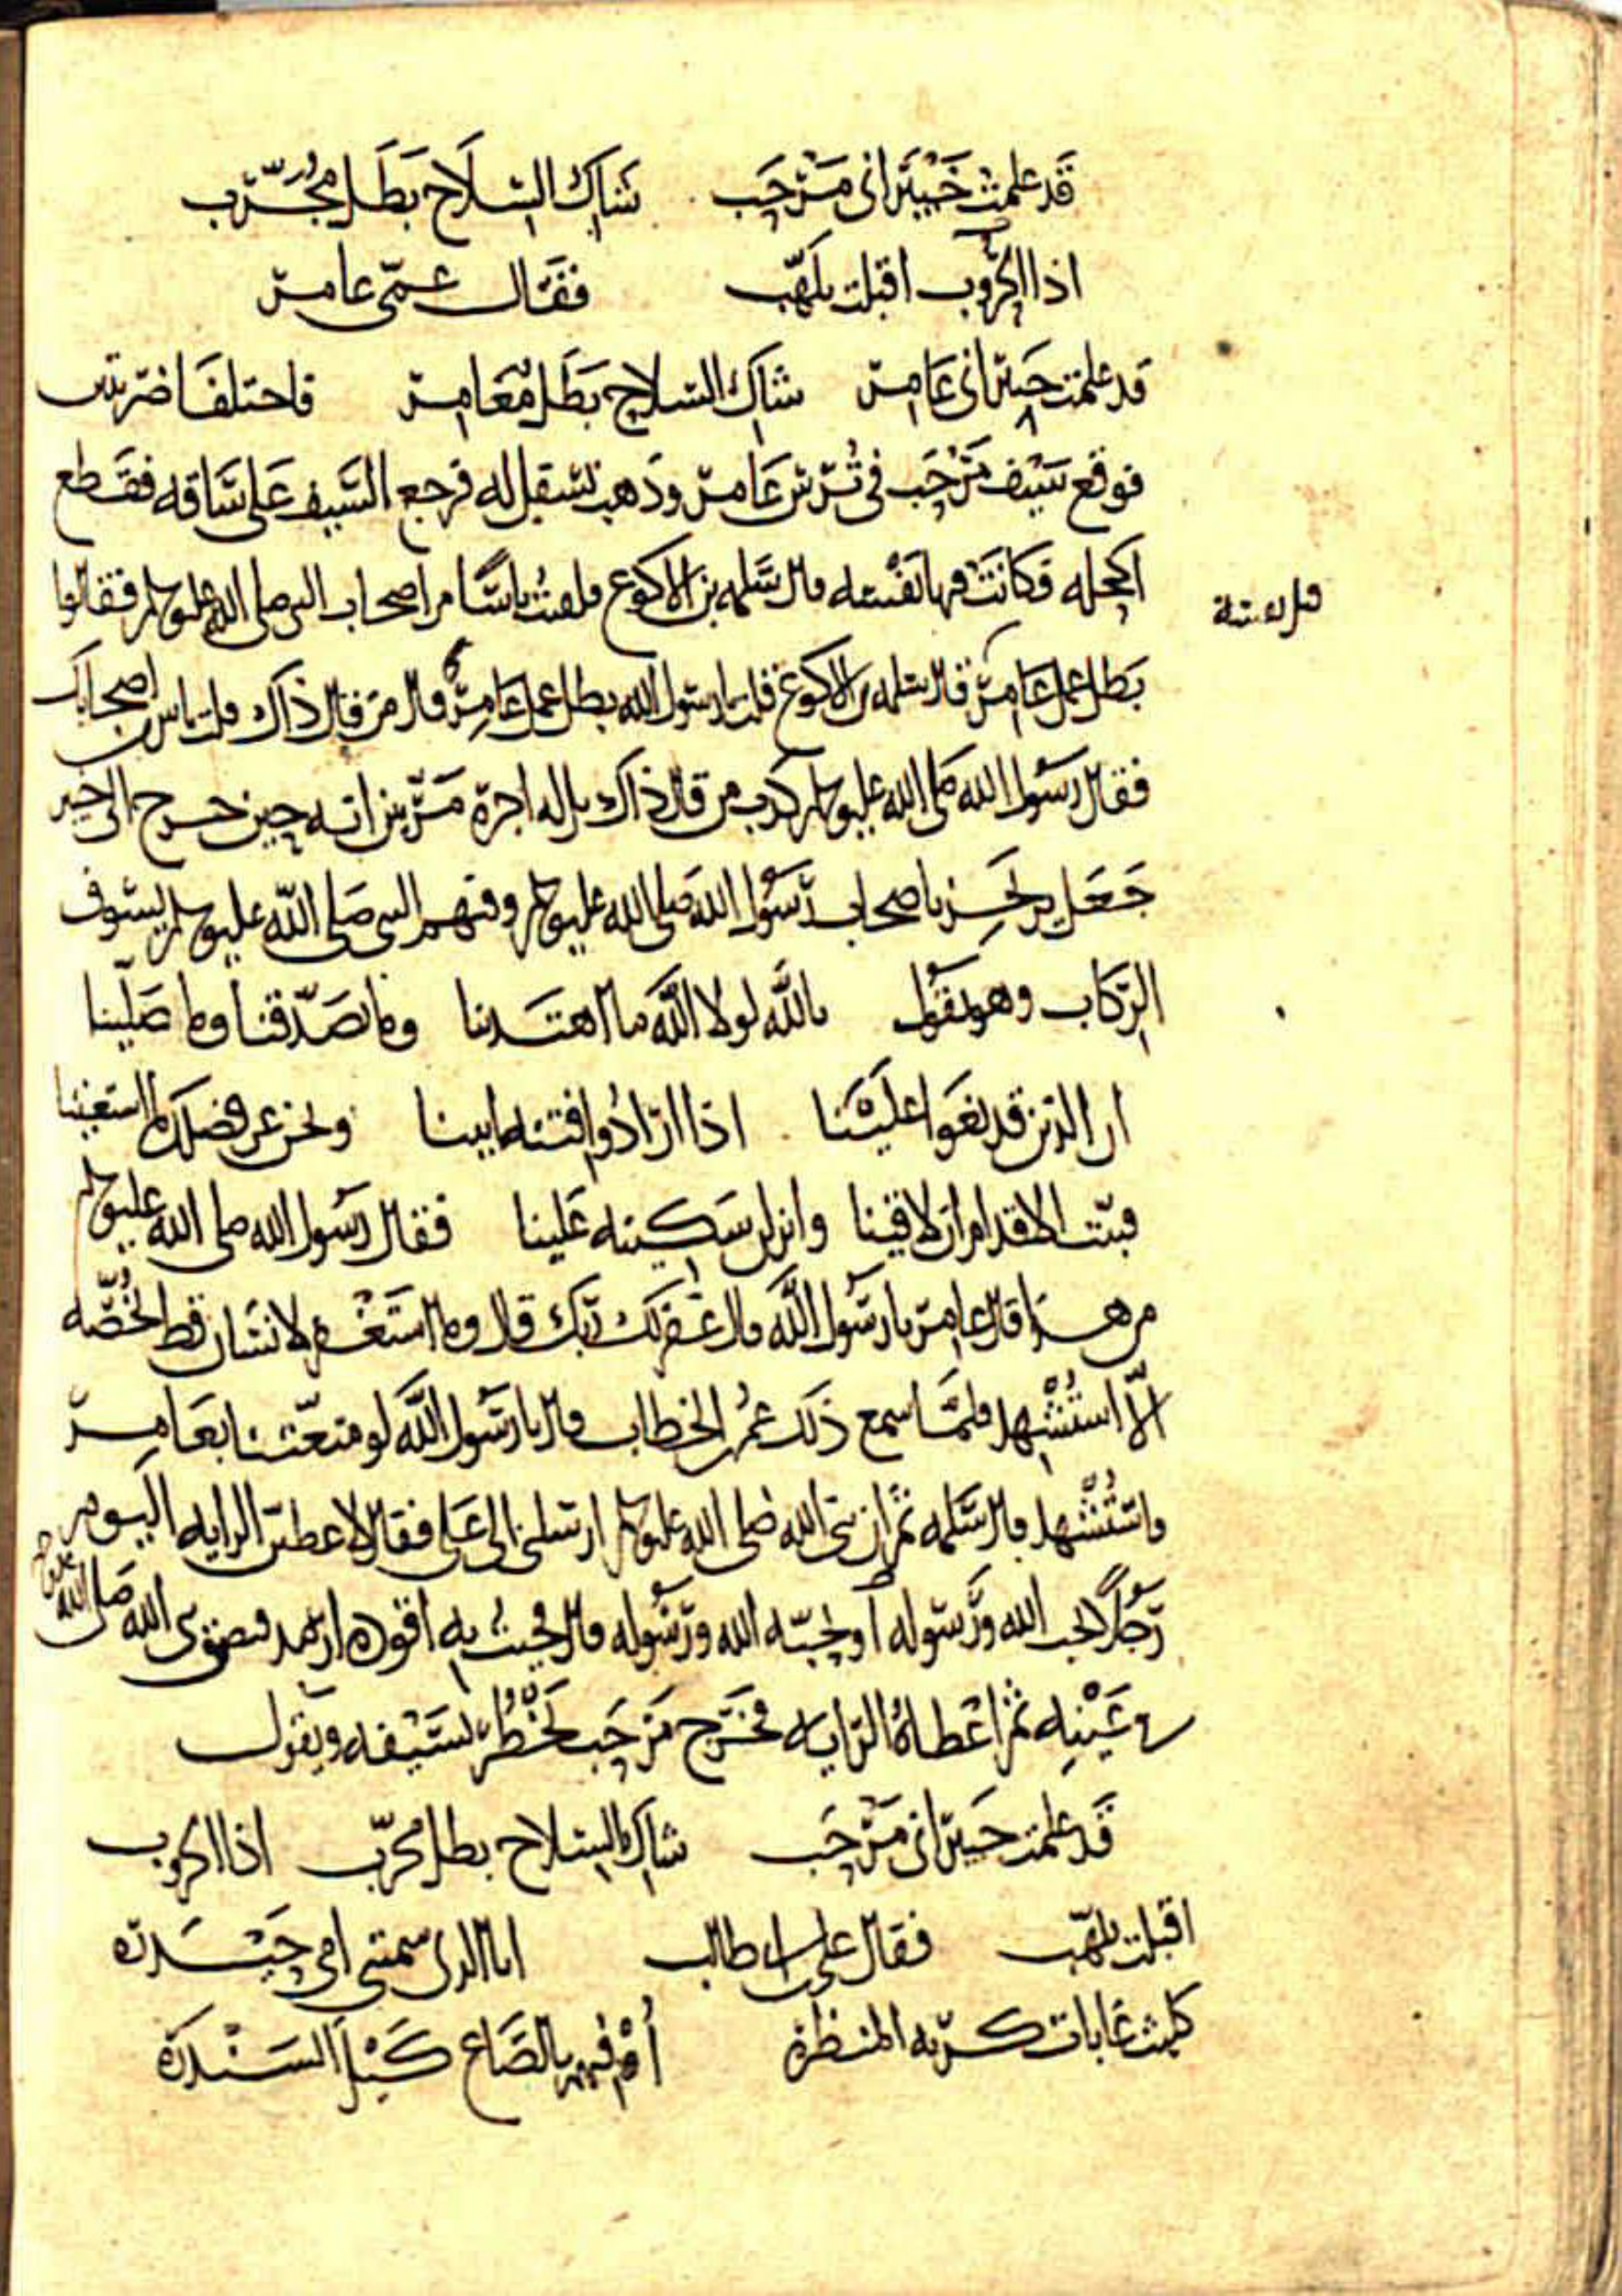 قَد علمت خَيْبَر اني مَرْحَب شَاكِ السِّلَاح بَطَل مُجَرَّب
اذا الحروب اقبلت تلهّب فقَال عمّي عامر
قد علمت خيبر اني عَامِر شاكِ السلاح بَطَل مُغَامِر فاختلفَا ضربتين
فوقع سَيْف مَرْحَب في تُرْس عَامر وذهب يسفل له فرجع السَّيف عَلى سَاقه فقَطع
اكحله فكَانَتْ فيها نَفْسه قال سَلمه بن الاكوع فلقيتُ ناسًا من اصحاب النبي صلى الله عليه وسلم فقالوا
بَطَل عمل عَامِر قال سلمه بن الاكوع قلت يا رسول الله بطل عمل عَامِر قال من قال ذاك قلت ناس من اصحابك
فقال رسول الله صَلى الله عليه وسلم كذب من قال ذاك بل له اجره مَرّتين انه حين خرج الى خيبر
جَعَل يرتجز باصحاب رسُول الله صَلى الله عليه وسلم وفيهم النبي صَلى الله عليه وسلم يسُوق
الرّكاب وهو يقول تالله لولا اللَّه ما اهتَدينا وما تصَدّقنا وما صَلّينا
ان الذين قد بغَوا علَيْنا اذا ارَادُوا فتنه ابينا ونحن عن فضلك ما استغنينا
فثبّت الاقدام ان لاقينا وانزلن سَكينه عَلينا فقال رسُول الله صلى الله عليه وسلم
من هذا قال عامر يا رسُول اللَّه قال غفر لك ربّك قال وما استَغْفر لانسَان قط يخُصّه
الّا استُشْهِد فلمّا سمع ذلك عمُر بن الخطاب قال يا رسُول اللَّه لو متعّتنا بعَامِر
فاستُشْهد قال سَلمه ثم ان نبي الله صَلى الله عليه وسلم ارسلني الى عَلي فقال لاعطين الرايه اليوم
رَجُلًا يحب الله ورَسوله او يحبّه الله ورَسُوله قال فجئت به اقوده ارمد فبصق نبي الله صَلى الله عليه وسلم
في عَيْنيه ثم اعْطاهُ الرايه فخَرج مَرْحَب يَخْطُر بسَيْفه ويقول
قَد علمت خيبر اني مَرْحَب شاكِ السلاح بطل مجرّب اذا الحروب
اقبلت تلهّب فقال علي بن ابي طالب انا الذي سمتني امي حَيْدَرَه
كليث غابات كريه المنظره أُوْفيهم بالصَّاع كَيْلَ السَنْدَرَه